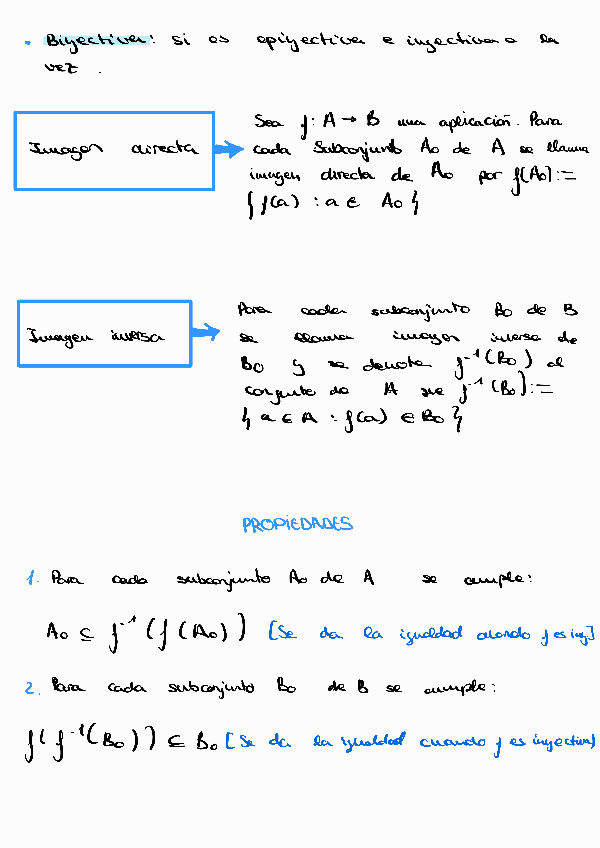 • Biyectiva: si es epiyectiva e inyectiva a la
vez.
Imagen directa
Sea f: A → B una aplicación. Para
cada subconjunto A₀ de A se llama
imagen directa de A₀ por f(A₀):=
{ f(a) : a ∈ A₀ }
Imagen inversa
Para cada subconjunto B₀ de B
se llama imagen inversa de
B₀ y se denota f⁻¹(B₀) al
conjunto de A que f⁻¹(B₀):=
{ a ∈ A : f(a) ∈ B₀ }
PROPIEDADES
1. Para cada subconjunto A₀ de A se cumple:
A₀ ⊆ f⁻¹(f(A₀)) [Se da la igualdad cuando f es iny]
2. Para cada subconjunto B₀ de B se cumple:
f(f⁻¹(B₀)) ⊆ B₀ [Se da la igualdad cuando f es inyectiva]